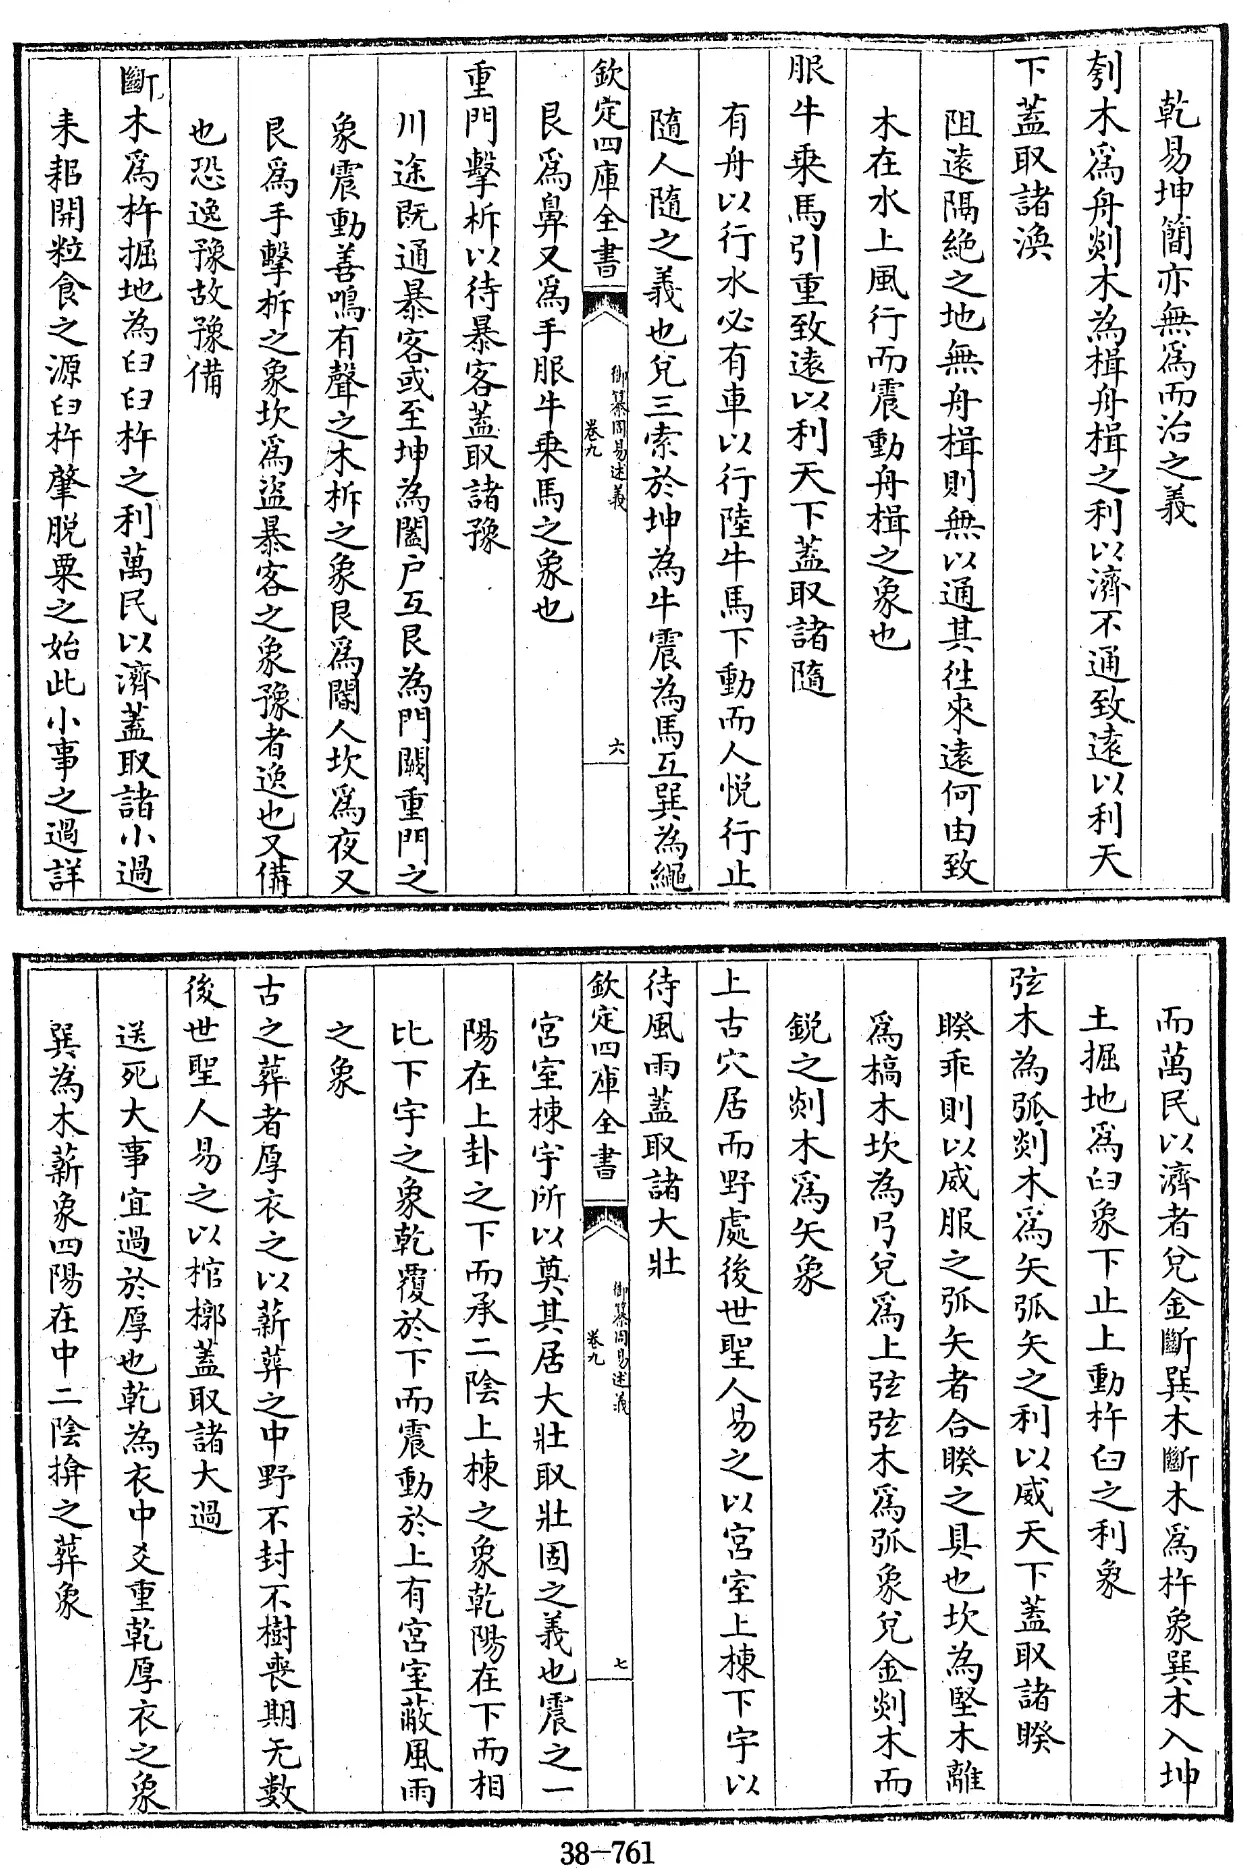 乾易坤簡亦無為而治之義
刳木為舟剡木為楫舟楫之利以濟不通致遠以利天
下蓋取諸渙
阻遠隔絶之地無舟楫則無以通其徃來遠何由致
木在水上風行而震動舟楫之象也
服牛乘馬引重致遠以利天下蓋取諸隨
有舟以行水必有車以行陸牛馬下動而人悅行止
隨人隨之義也兌三索於坤為牛震為馬互巽為繩
欽定四庫全書
御纂周易述義
卷九
六
艮為鼻又為手服牛乘馬之象也
重門擊柝以待暴客蓋取諸豫
川途既通暴客或至坤為闔户互艮為門闕重門之
象震動善鳴有聲之木柝之象艮為閽人坎為夜又
艮為手擊柝之象坎為盜暴客之象豫者逸也又備
也恐逸豫故豫備
斷木為杵掘地為臼臼杵之利萬民以濟蓋取諸小過
耒耜開粒食之源臼杵肇脫粟之始此小事之過詳
而萬民以濟者兌金斷巽木斷木為杵象巽木入坤
土掘地為臼象下止上動杵臼之利象
弦木為弧剡木為矢弧矢之利以威天下蓋取諸睽
睽乖則以威服之弧矢者合睽之具也坎為堅木離
為槁木坎為弓兌為上弦弦木為弧象兌金剡木而
銳之剡木為矢象
上古穴居而野處後世聖人易之以宮室上棟下宇以
待風雨蓋取諸大壯
欽定四庫全書
御纂周易述義
卷九
七
宮室棟宇所以奠其居大壯取壯固之義也震之一
陽在上卦之下而承二陰上棟之象乾陽在下而相
比下宇之象乾覆於下而震動於上有宮室蔽風雨
之象
古之葬者厚衣之以薪葬之中野不封不樹喪期无數
後世聖人易之以棺槨蓋取諸大過
送死大事宜過於厚也乾為衣中爻重乾厚衣之象
巽為木薪象四陽在中二陰揜之葬象
38-761